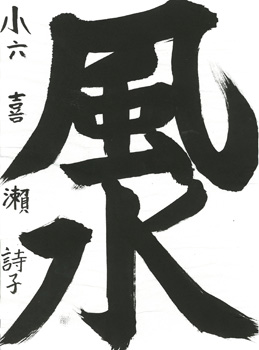 風水
小六 喜瀬詩子